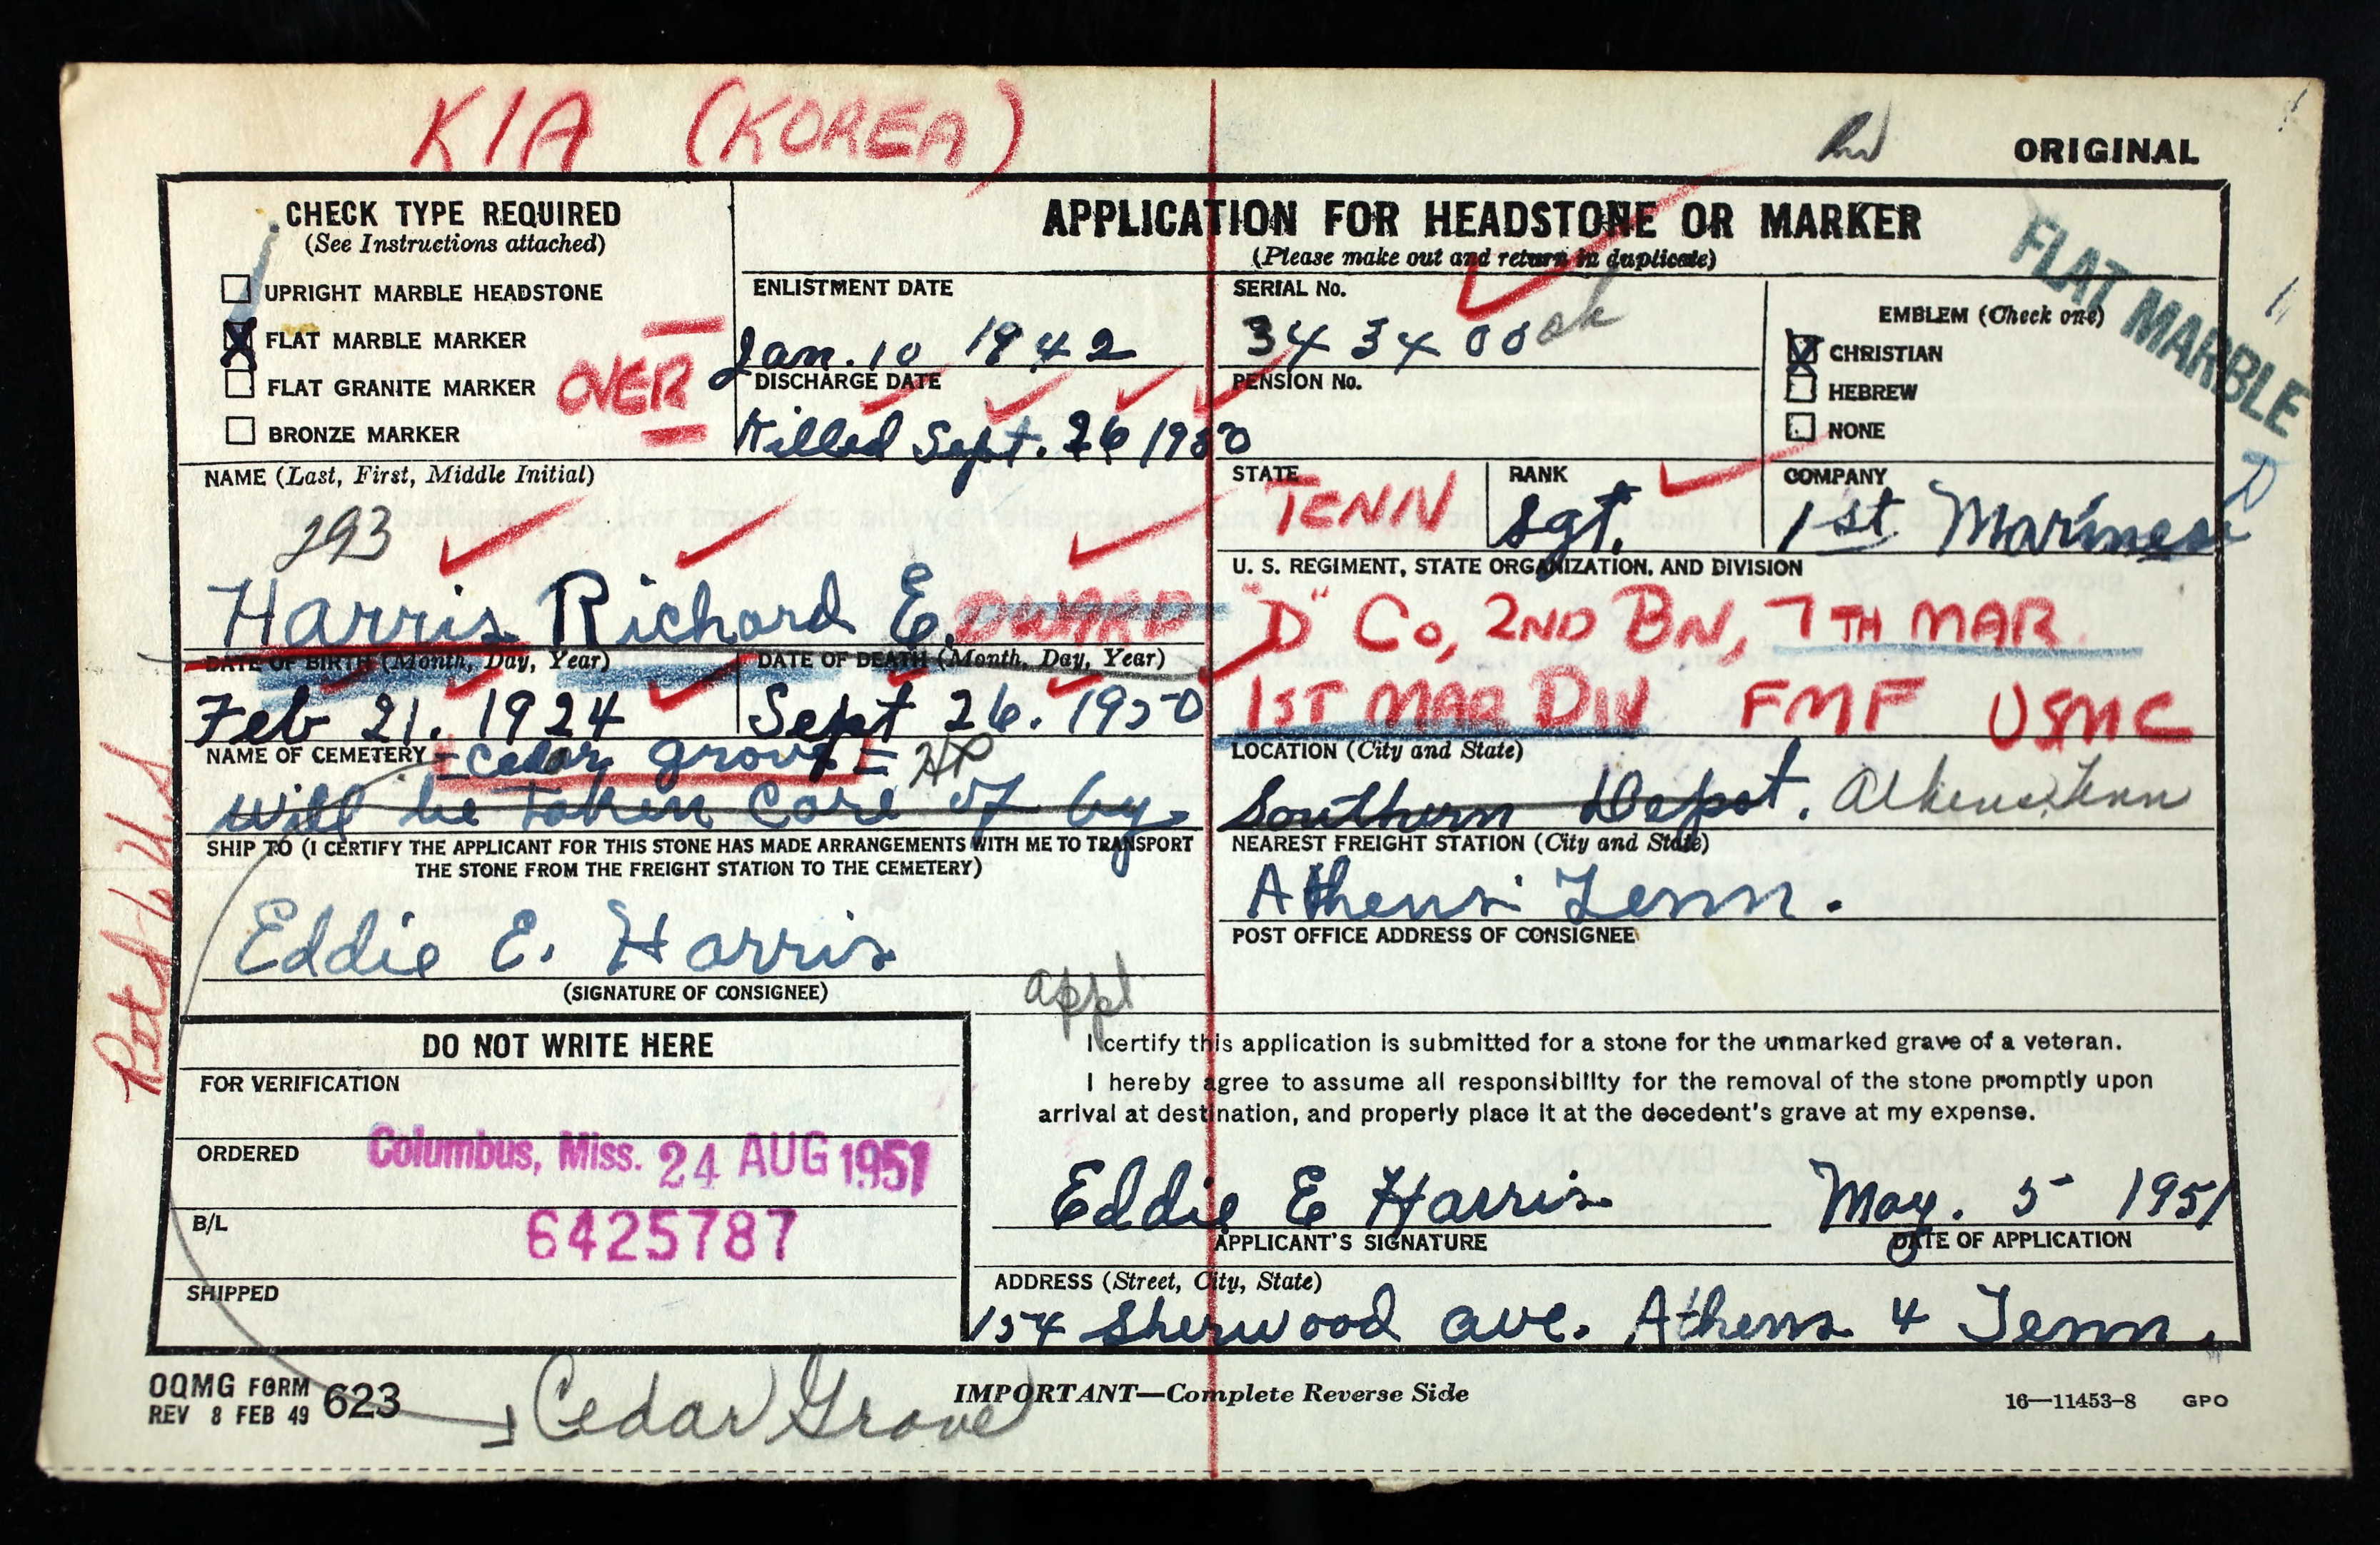 KIA (KOREA)
ORIGINAL
CHECK TYPE REQUIRED
(See Instructions attached)
UPRIGHT MARBLE HEADSTONE
X FLAT MARBLE MARKER
FLAT GRANITE MARKER
BRONZE MARKER
OVER
APPLICATION FOR HEADSTONE OR MARKER
(Please make out and return in duplicate)
FLAT MARBLE
ENLISTMENT DATE
Jan. 10 1942
SERIAL No.
343400 ok
DISCHARGE DATE
Killed Sept. 26 1950
PENSION No.
EMBLEM (Check one)
X CHRISTIAN
HEBREW
NONE
NAME (Last, First, Middle Initial)
293
Harris Richard E. DWARD
STATE
TENN
RANK
Sgt.
COMPANY
1st Marines
U. S. REGIMENT, STATE ORGANIZATION, AND DIVISION
"D" Co, 2ND BN, 7TH MAR.
1ST MAR DIV FMF USMC
DATE OF BIRTH (Month, Day, Year)
Feb 21. 1924
DATE OF DEATH (Month, Day, Year)
Sept 26. 1950
NAME OF CEMETERY
= Cedar Grove =
will be taken care of by
LOCATION (City and State)
Southern Depot. Athens, Tenn
SHIP TO (I CERTIFY THE APPLICANT FOR THIS STONE HAS MADE ARRANGEMENTS WITH ME TO TRANSPORT
THE STONE FROM THE FREIGHT STATION TO THE CEMETERY)
Eddie E. Harris
(SIGNATURE OF CONSIGNEE)
NEAREST FREIGHT STATION (City and State)
Athens Tenn.
POST OFFICE ADDRESS OF CONSIGNEE
appl
DO NOT WRITE HERE
FOR VERIFICATION
ORDERED
Columbus, Miss. 24 AUG 1951
B/L
6425787
SHIPPED
I certify this application is submitted for a stone for the unmarked grave of a veteran.
I hereby agree to assume all responsibility for the removal of the stone promptly upon
arrival at destination, and properly place it at the decedent's grave at my expense.
Eddie E Harris
May. 5 1951
APPLICANT'S SIGNATURE
DATE OF APPLICATION
ADDRESS (Street, City, State)
154 Sherwood ave. Athens 4 Tenn.
OQMG FORM 623
REV 8 FEB 49
Cedar Grove
IMPORTANT—Complete Reverse Side
16—11453-8 GPO